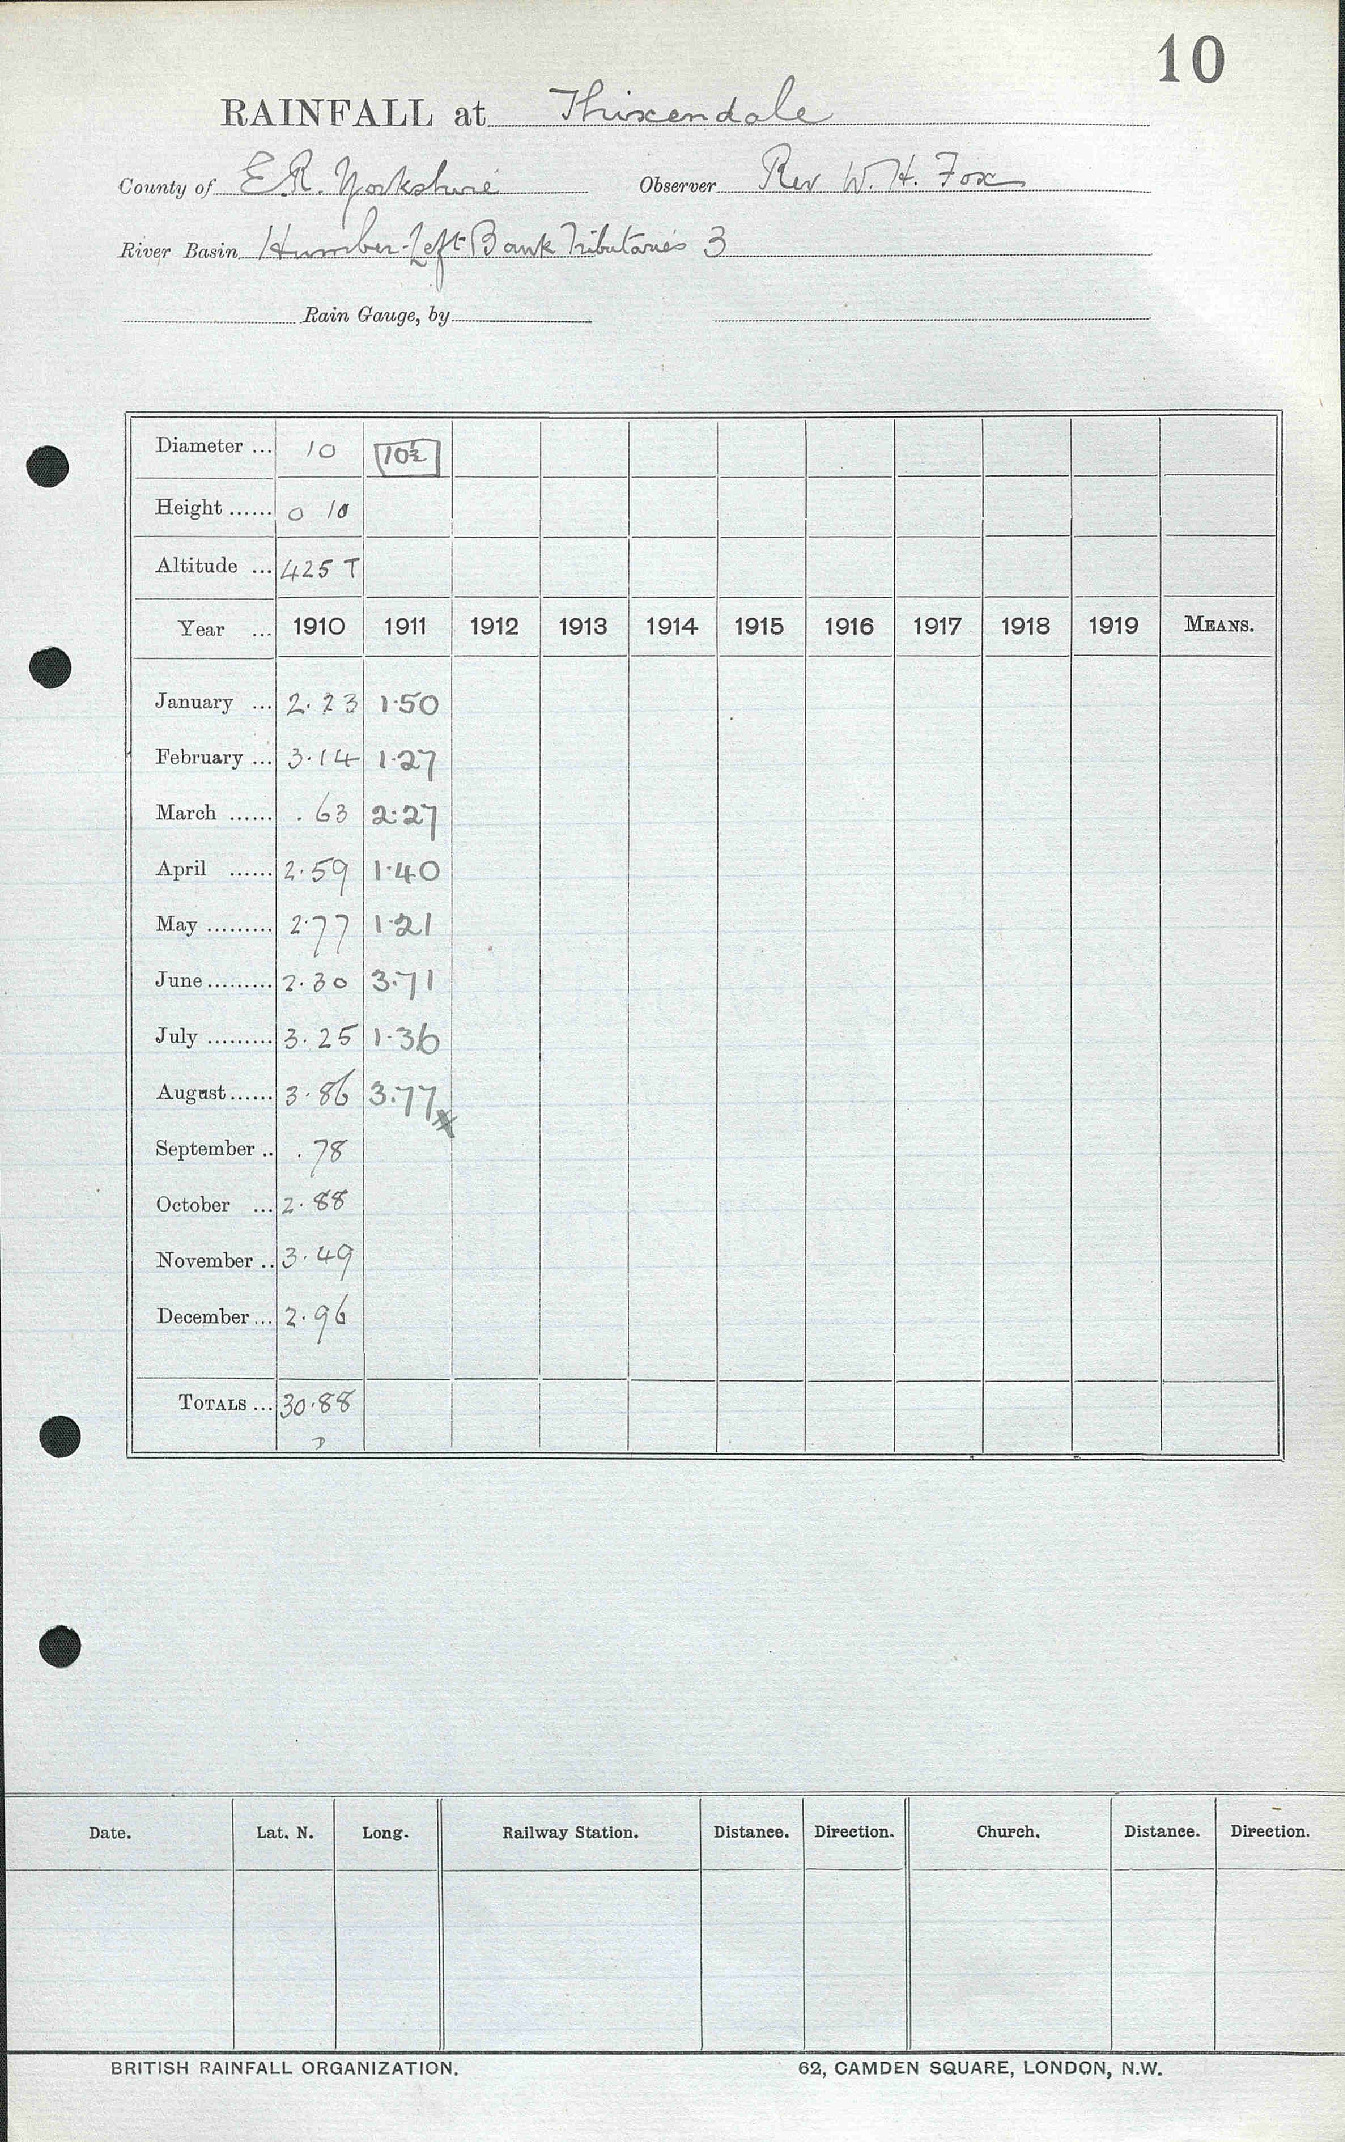 10
RAINFALL at Thixendale
County of E.R. Yorkshire Observer Rev W. H. Fox
River Basin Humber-Left Bank Tributaries 3
Rain Gauge, by
Diameter ... 10 10½
Height ...... 0 10
Altitude ... 425 T
Year ... 1910 1911 1912 1913 1914 1915 1916 1917 1918 1919 MEANS.
January ... 2.23 1.50
February ... 3.14 1.27
March ...... .63 2.27
April ...... 2.59 1.40
May ......... 2.77 1.21
June ......... 2.30 3.71
July ......... 3.25 1.36
August ...... 3.86 3.77 x
September .. .78
October ... 2.88
November .. 3.49
December ... 2.96
TOTALS ... 30.88
Date. Lat. N. Long. Railway Station. Distance. Direction. Church. Distance. Direction.
BRITISH RAINFALL ORGANIZATION. 62, CAMDEN SQUARE, LONDON, N.W.